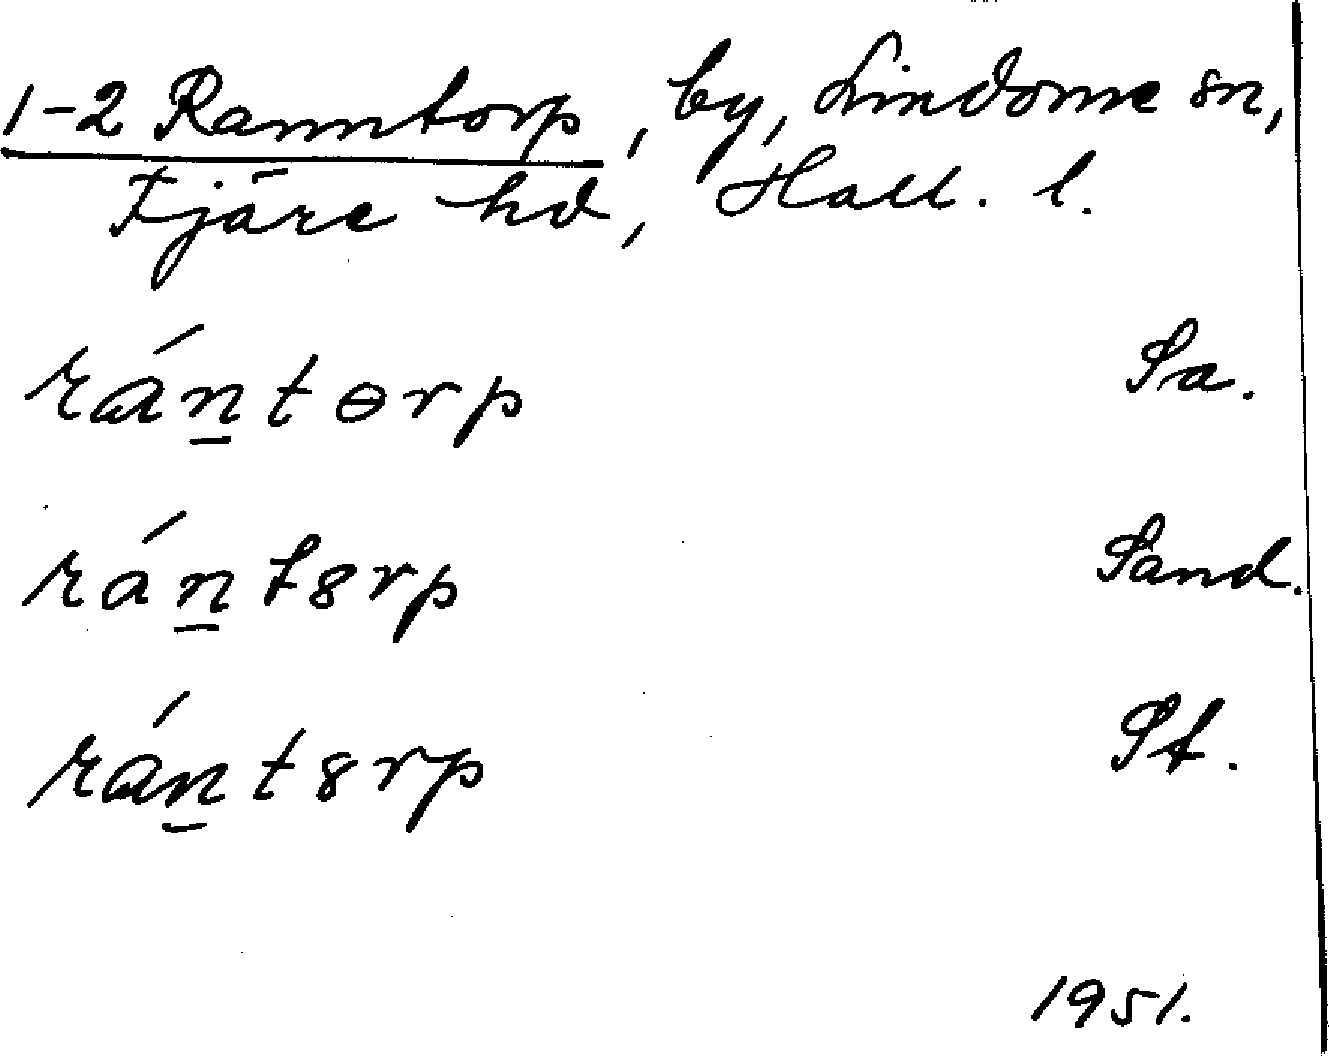 1-2 Ranntorp, by, Lindome sn,
Fjäre hd, Hall. l.
rán̲tɵrp Sa.
rán̲t8rp Sand.
rán̲t8rp St.
1951.